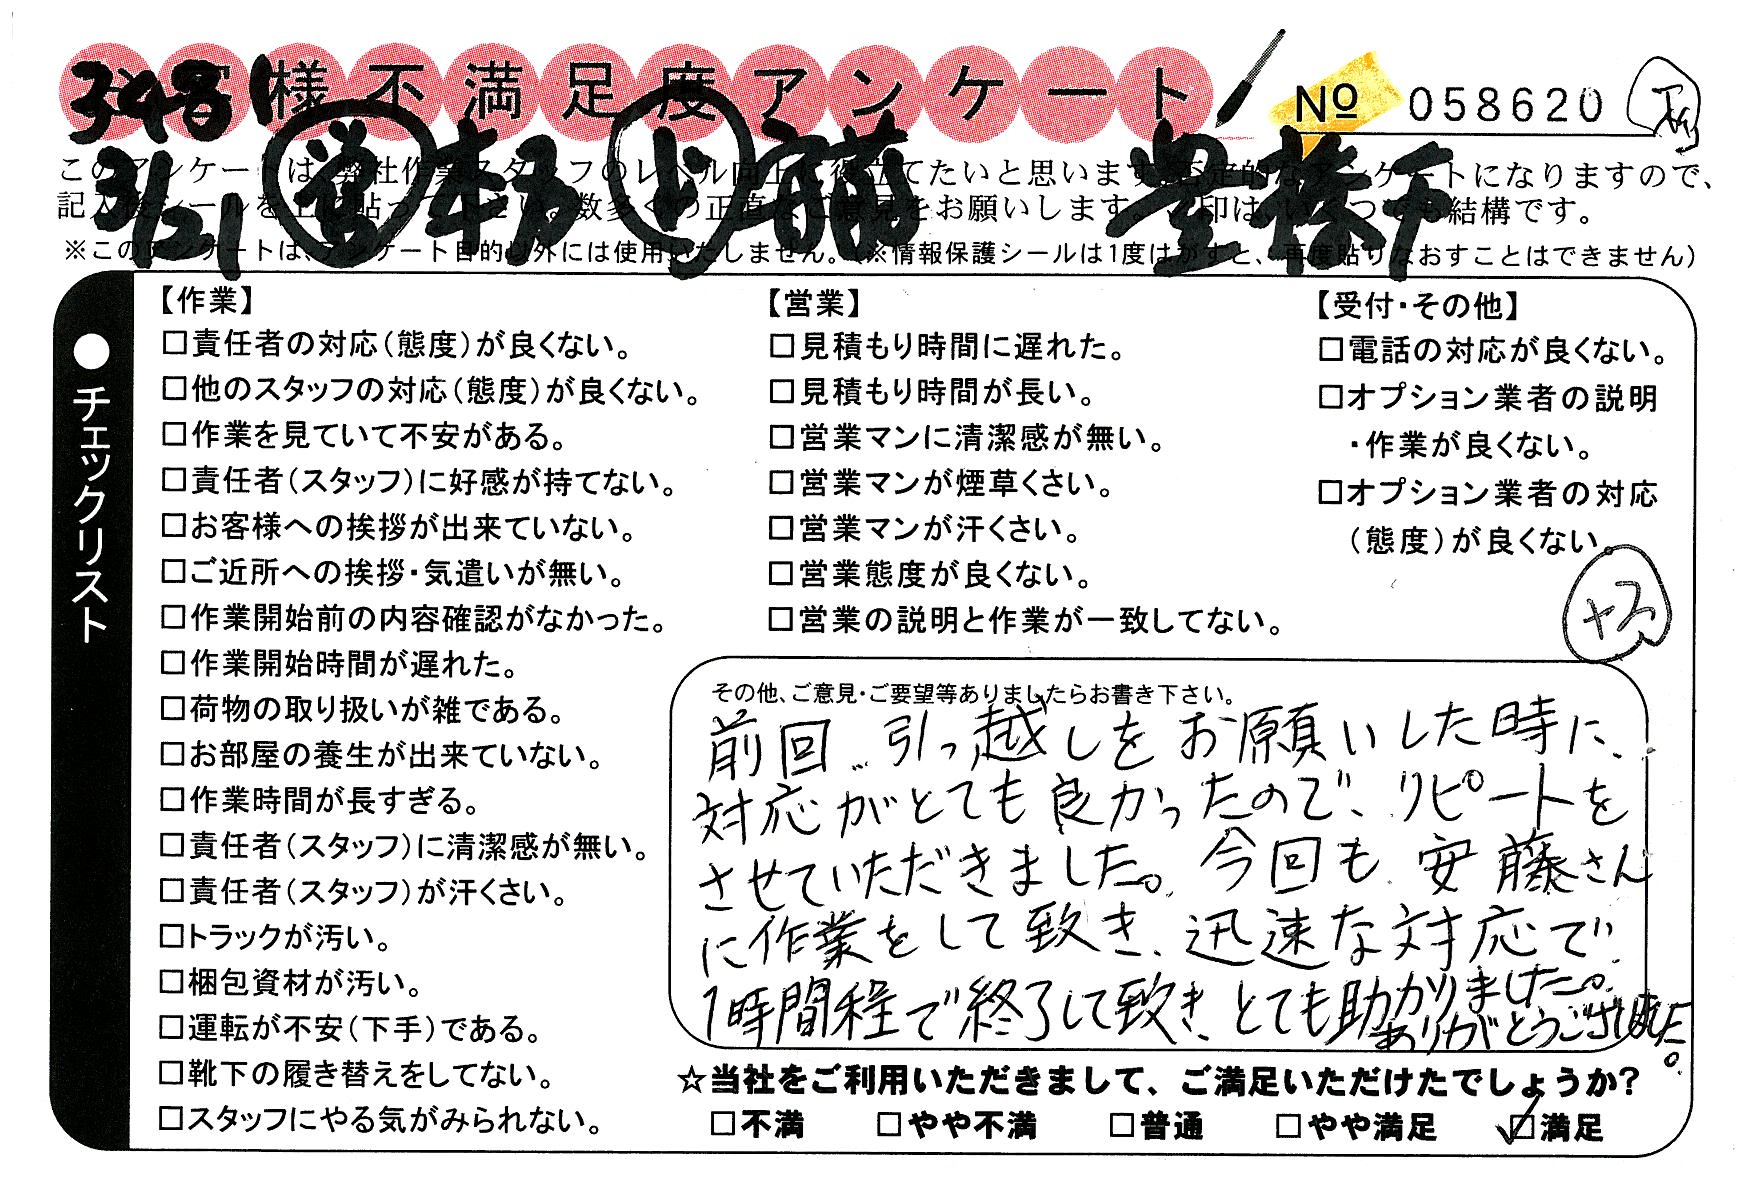 様不満足度アンケート
№ 058620
※このアンケートは、アンケート目的以外には使用いたしません。(※情報保護シールは1度はがすと、再度貼りなおすことはできません)
●チェックリスト
【作業】
□責任者の対応(態度)が良くない。
□他のスタッフの対応(態度)が良くない。
□作業を見ていて不安がある。
□責任者(スタッフ)に好感が持てない。
□お客様への挨拶が出来ていない。
□ご近所への挨拶・気遣いが無い。
□作業開始前の内容確認がなかった。
□作業開始時間が遅れた。
□荷物の取り扱いが雑である。
□お部屋の養生が出来ていない。
□作業時間が長すぎる。
□責任者(スタッフ)に清潔感が無い。
□責任者(スタッフ)が汗くさい。
□トラックが汚い。
□梱包資材が汚い。
□運転が不安(下手)である。
□靴下の履き替えをしてない。
□スタッフにやる気がみられない。
【営業】
□見積もり時間に遅れた。
□見積もり時間が長い。
□営業マンに清潔感が無い。
□営業マンが煙草くさい。
□営業マンが汗くさい。
□営業態度が良くない。
□営業の説明と作業が一致してない。
【受付・その他】
□電話の対応が良くない。
□オプション業者の説明
・作業が良くない。
□オプション業者の対応
(態度)が良くない。
その他、ご意見・ご要望等ありましたらお書き下さい。
前回、引っ越しをお願いした時に、
対応がとても良かったので、リピートを
させていただきました。今回も安藤さん
に作業をして致き、迅速な対応で
1時間程で終了して致き、とても助かりました。
ありがとうございました。
☆当社をご利用いただきまして、ご満足いただけたでしょうか?
□不満 □やや不満 □普通 □やや満足 ☑満足